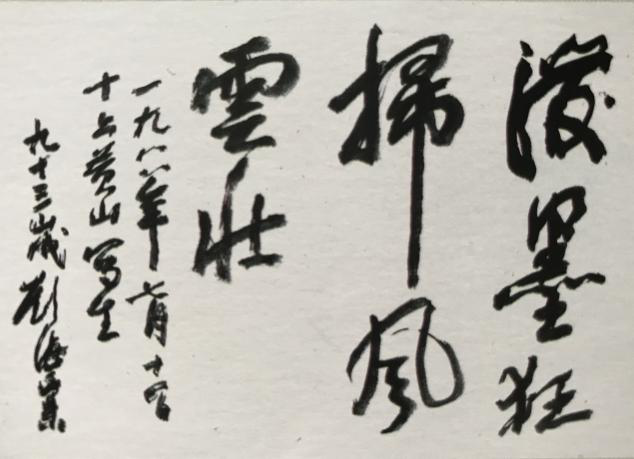 潑墨狂
掃風
雲壯
一九八八年七月十日
十上黃山寫生
九十三歲劉海粟